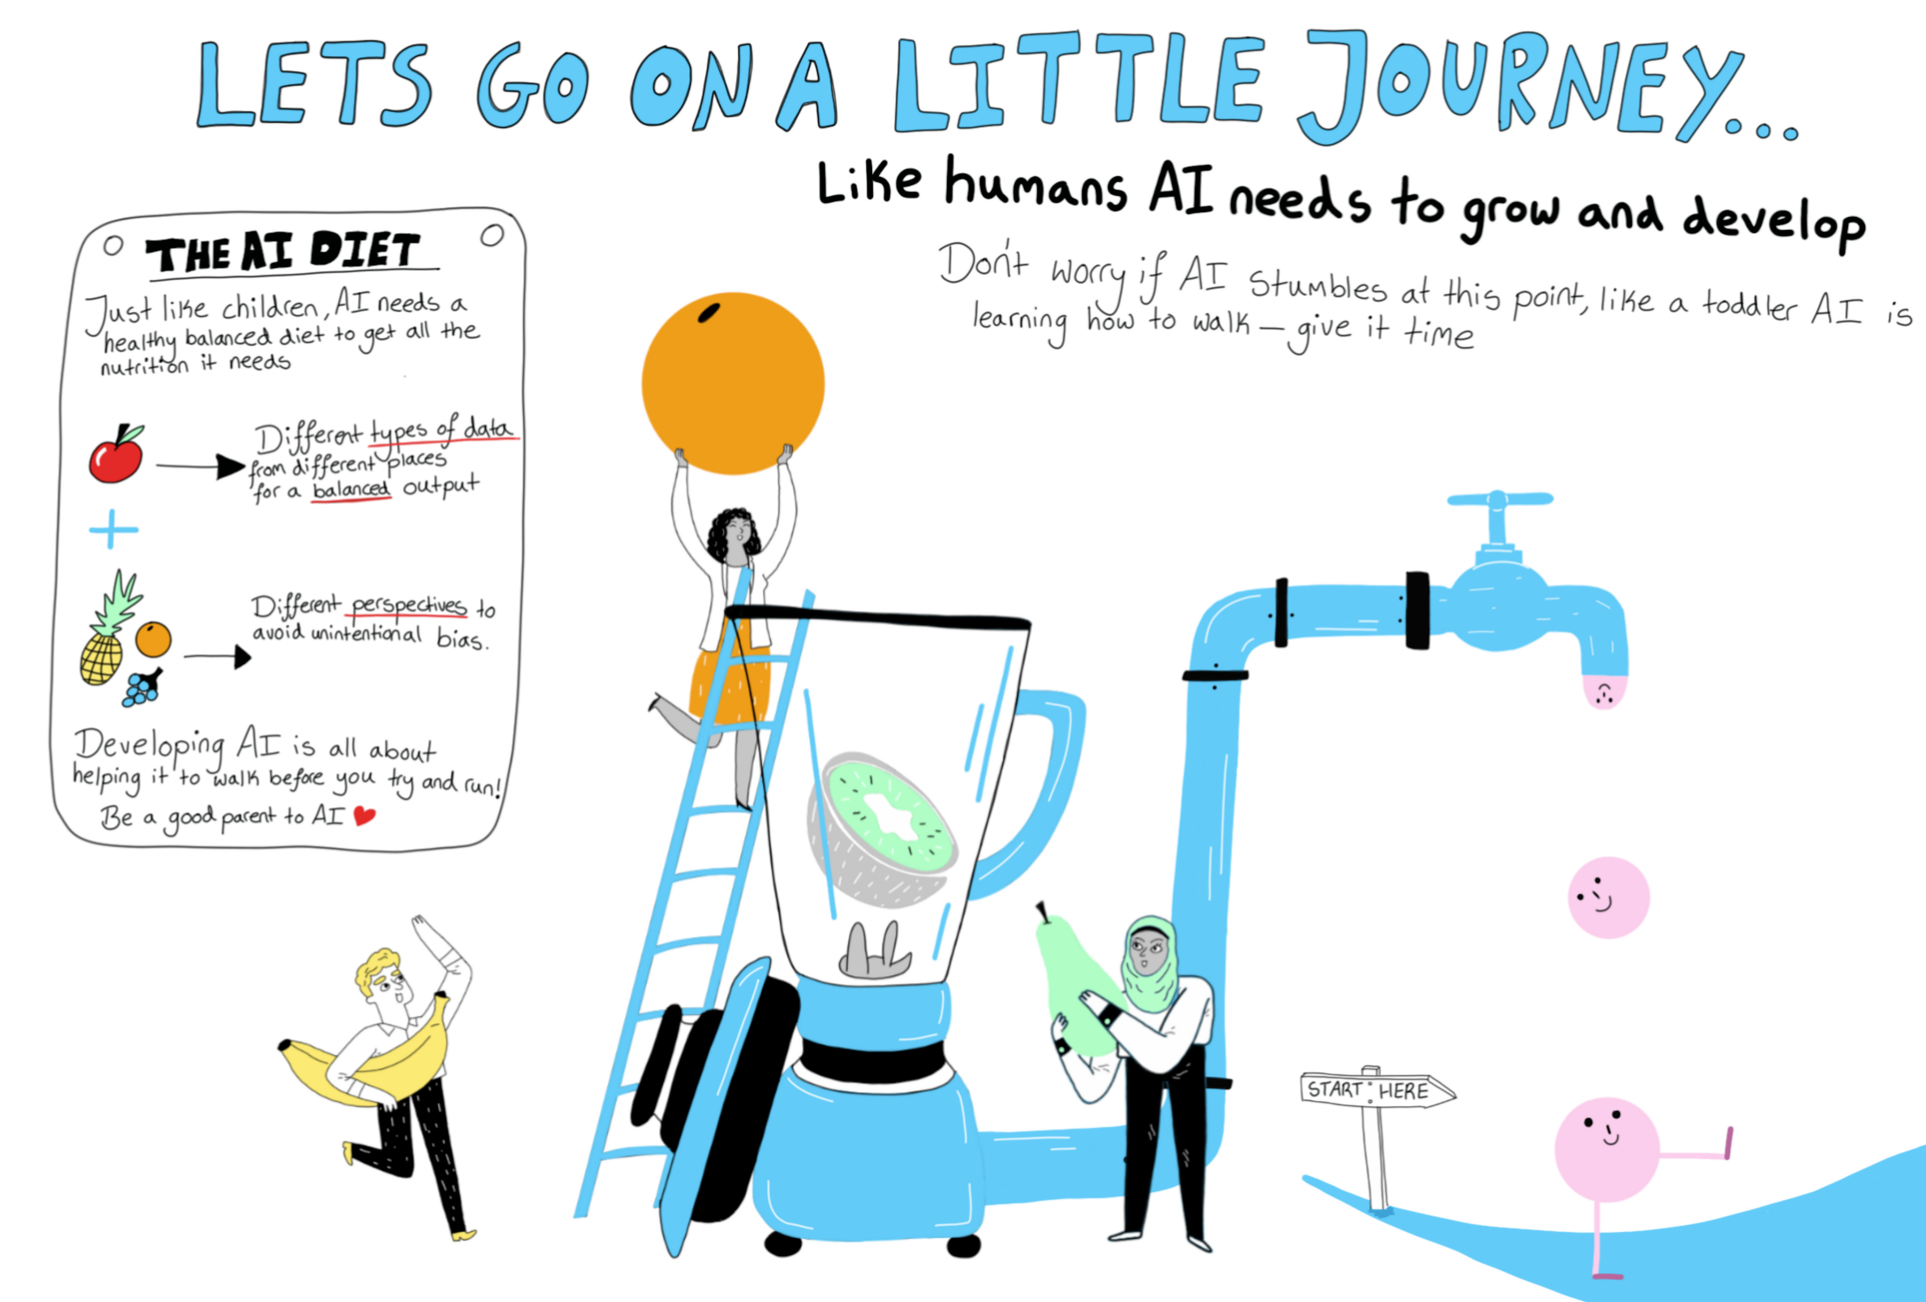 LETS GO ON A LITTLE JOURNEY...
Like humans AI needs to grow and develop
Don't worry if AI stumbles at this point, like a toddler AI is
learning how to walk — give it time
THE AI DIET
Just like children, AI needs a
healthy balanced diet to get all the
nutrition it needs
Different types of data
from different places
for a balanced output
Different perspectives to
avoid unintentional bias.
Developing AI is all about
helping it to walk before you try and run!
Be a good parent to AI ❤
START HERE